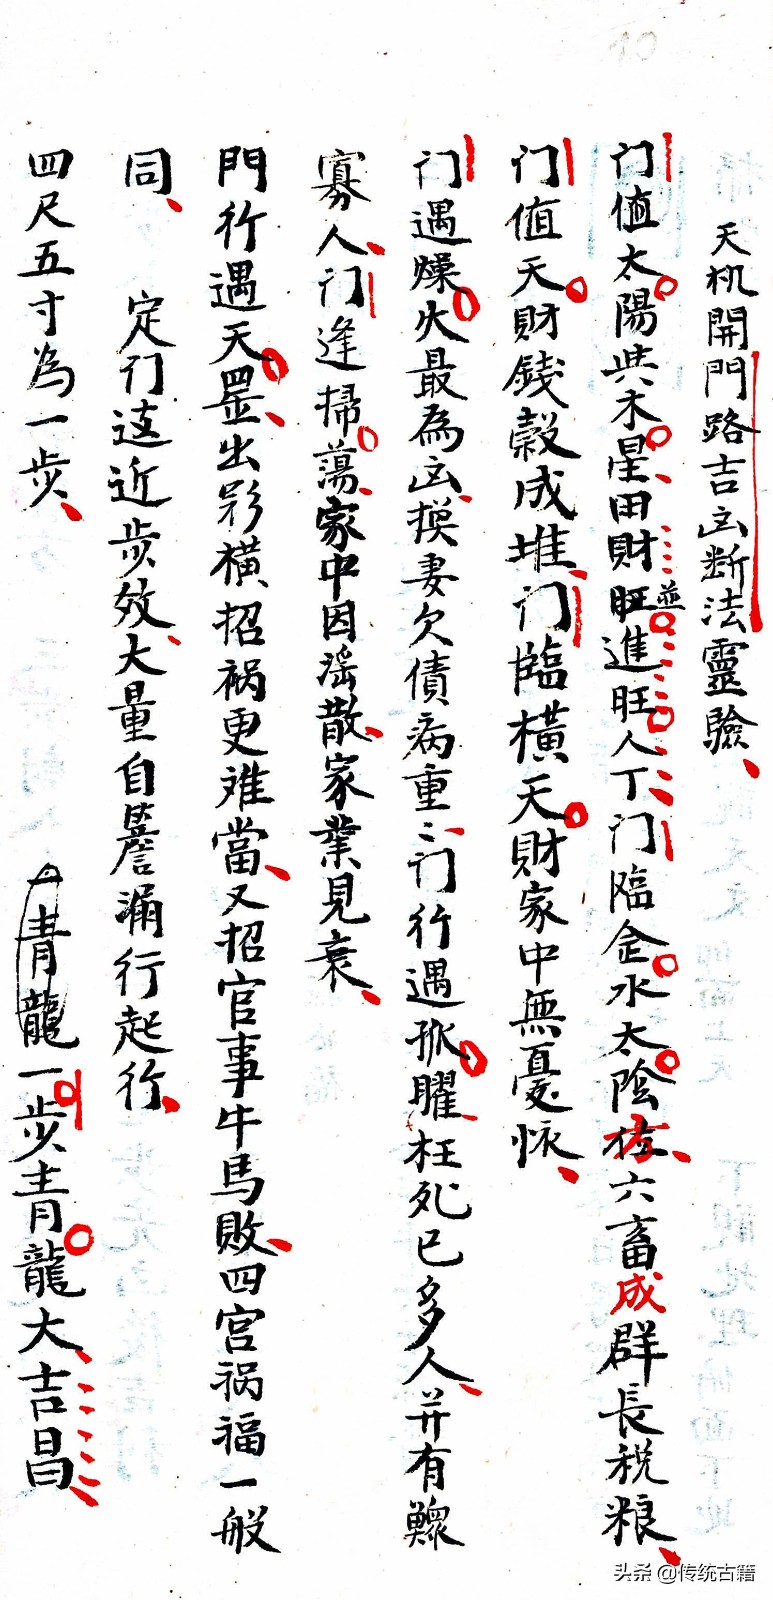 天机開門路吉凶断法靈驗
门值太陽共木星田財旺並進旺人丁门臨金水太陰位六畜成群長税粮
门值天財錢穀成堆门臨橫天財家中無憂恢
门遇燥火最為凶損妻欠債病重〻门行遇孤曜枉死已多人并有鰥
寡人门逢掃蕩家中因淫散家業見衰
門行遇天罡出彩橫招祸更难當又招官事牛馬敗四宫祸福一般
同
定门遠近步效大量自簷滴行起行
四尺五寸為一步
青龍一步青龍大吉昌
头条 @传统古籍